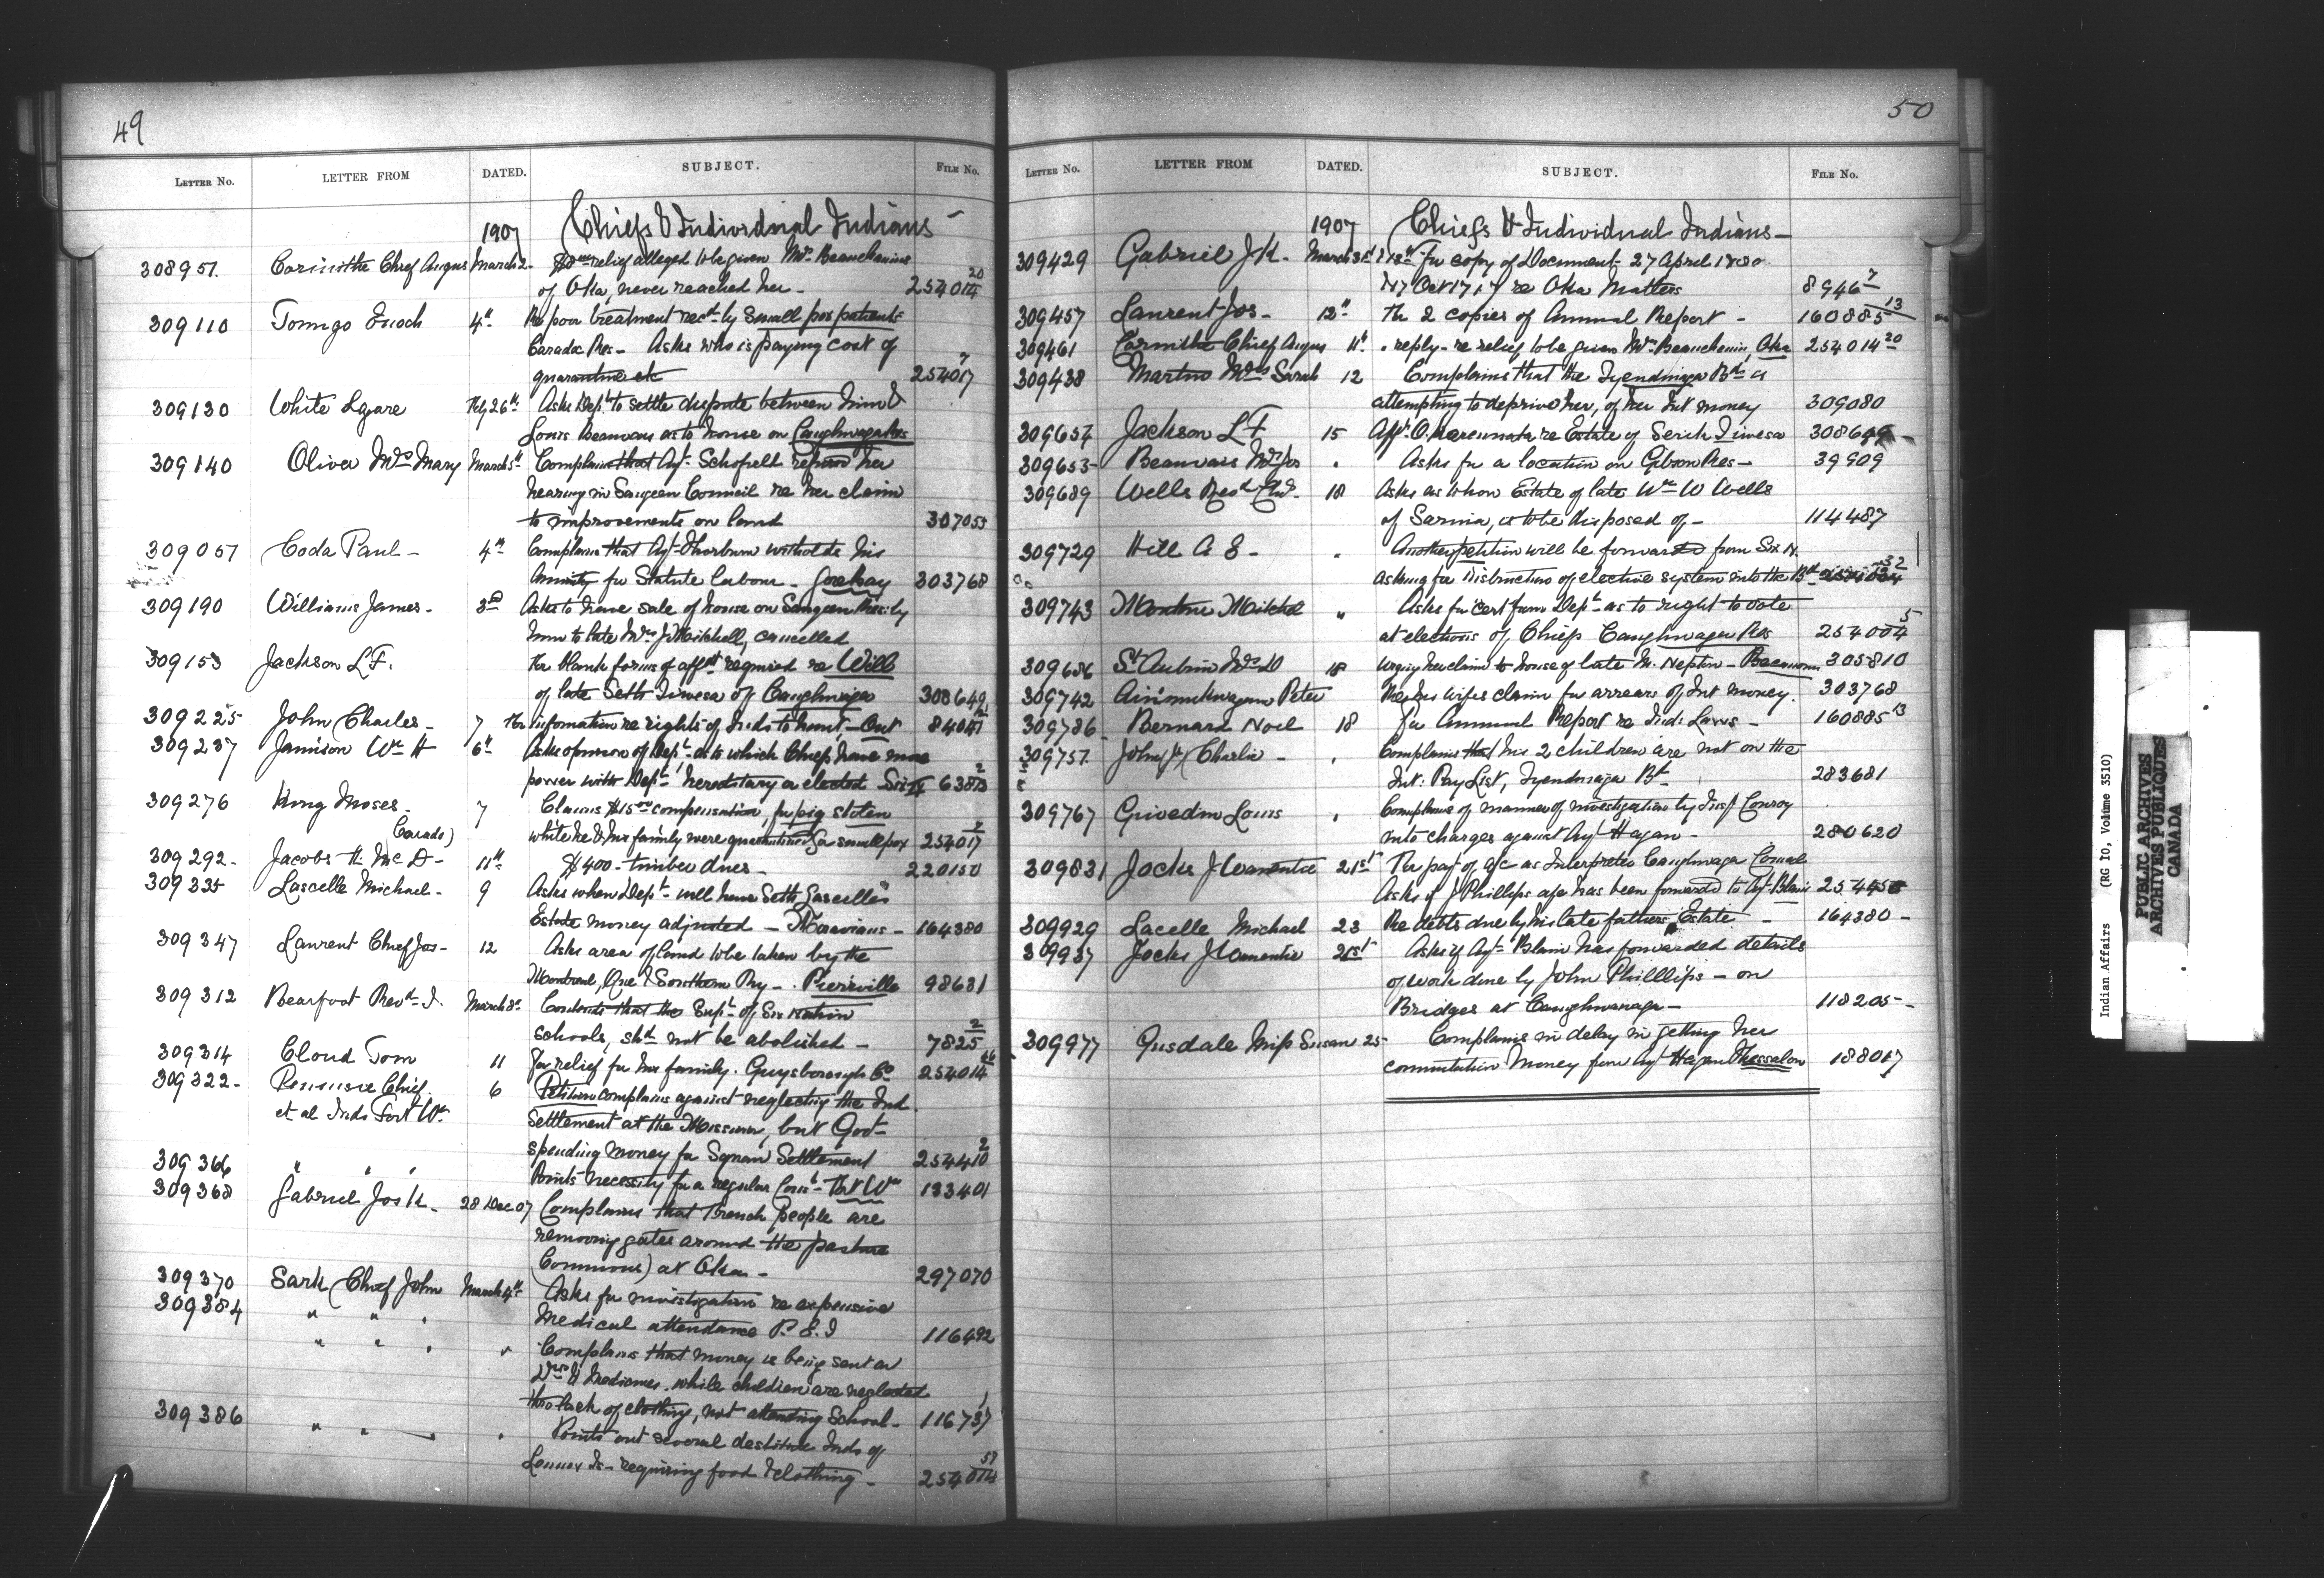 49
LETTER No. LETTER FROM DATED. SUBJECT. FILE No.
1907 Chiefs & Individual Indians -
308951. Corinthe Chief Angus March 2. relief alleged to be given Mrs. Beauchamin
of Oka, never reached her - 254014 20
309110 Tomigo Enoch 4th Re poor treatment recd by Small pox patients
Caradoc Res - Asks who is paying cost of
quarantine etc 254017 7
309130 White Lazare Feby 26th Asks Dept. to settle dispute between him &
Louis Beauvais as to house on Caughnawaga Res
309140 Oliver Mrs Mary March 5th Complains that Agt. Schofield refuses her
hearing in Saugeen Council re her claim
to improvements on land 307055
309057 Coda Paul - 4th Complains that Agt. Thorburn witholds his
Annuity for Statute labour - Gorebay 303768
309190 Williams James - 3rd Asks to have sale of house on Saugeen Res by
him to late Mrs J Mitchell, cancelled
309153 Jackson L.F. for blank forms of afft required re Will
of late Seth Tiwesa of Caughnawaga 308649
309225 John Charles - 7 for information re rights of Inds to hunt - Ont 84041
309237 Jamison Wm H 6th Asks opinion of Dept. as to which Chiefs have more
power with Dept, hereditary or elected Six N 63813 2
309276 King Moses - 7 Claims $15.00 compensation, for pig stolen
Carado) while he & his family were quarantined for smallpox 254017 7
309292 - Jacobs H. Mc D - 11th $400 - timber dues - 220150
309335 Lascelle Michael - 9 Asks when Dept. will have Seth Lascelle's
Estate money adjusted - Moravians - 164380
309347 Laurent Chief Jos - 12 Asks area of land to be taken by the
Montreal, Que & Southern Ry - Pierreville 98631
309312 Bearfoot Revd I. March 8th Contends that the Supt. of Six Nation
schools, shd not be abolished - 7825 2
309314 Cloud Tom 11 for relief for his family. Guysborough Co 254014
309322 - Chief 6 Petition complains against neglecting the Ind
et al Inds Fort Wm Settlement at the Mission, but Govt
spending money for Squaw Settlement 254410 2
309366 " " " Points necessity for a regular Const - Fort Wm 133401
309368 Gabriel Jos K. 28 Dec 07 Complains that French people are
removing gates around the pasture
(Commons) at Oka - 297070
309370 Sark (Chief John March 4th Asks for investigation re expensive
309384 " " " Medical attendance P.E.I 116492
" " " " Complains that money is being sent on
Drs & Medicines while children are neglected
thro lack of clothing, not attending School - 116737 1
309386 " " " Points out several destitute Inds of
Lennox Is - requiring food & clothing - 254014 59
50
LETTER No. LETTER FROM DATED. SUBJECT. FILE No.
1907 Chiefs & Individual Indians -
309429 Gabriel J K. March & 13th for copy of Document - 27 April
& 17 Oct 1717 re Oka Matters 8946 7
309457 Laurent Jos - 12th for 2 copies of Annual Report - 160885 13
309461 Corinthe Chief Angus 11th reply - re relief to be given Mrs Beauchamin, Oka 254014 20
309438 Martin Mrs Sarah 12 Complains that the Tyendinaga Bd is
attempting to deprive her, of her Int money 309080
309654 Jackson L F 15 Afft O. Karennata re Estate of Serih Tiwesa 308649 -
309653 Beauvais Mrs Jos " Asks for a location on Gibson Res - 39909
309689 Wells Revd 18 Asks as to how Estate of late Wm W Wells
of Sarnia, is to be disposed of - 114487
309729 Hill A E - " Another petition will be forwarded from Six N.
asking for distinction of elective system into the Bd 32
309743 Montour Mitchel " Asks for cert from Dept. as to right to vote
at elections of Chiefs Caughnawaga Res 254004 5
309686 St Aubin Mrs D 18 Urging her claim to house of late M. Neptin - Becancour 305810
309742 Peter Re his wifes claim for arrears of Int money. 303768
309786 Bernard Noel 18 for Annual Report re Ind. Laws - 160885 13
309757. John Jr (Charlie - " Complains that his 2 children are not on the
Int. Pay List, Tyendinaga Bd 283681
309767 Givedin Louis " Complains of manner of investigation by Insp Conroy
into charges against Agt Hagan - 280620
309831 Jocks J Warentie 21st for pay of a/c as Interpreter Caughnawaga Council
Asks if J Phillips a/c has been forwarded to Agt Blain
309929 Lacelle Michael 23 Re debts due by his late fathers Estate - 164380 -
309937 Jocks J Warentie 21st Asks if Agt Blain has forwarded details
of work done by John Phillips - on
Bridges at Caughnawaga - 118205 -
309977 Gusdale Miss Susan 25 - Complains in delay in getting her
commutation Money from Agt Hagan Thessalon 188017
Indian Affairs (RG 10, Volume 3510)
PUBLIC ARCHIVES
ARCHIVES PUBLIQUES
CANADA